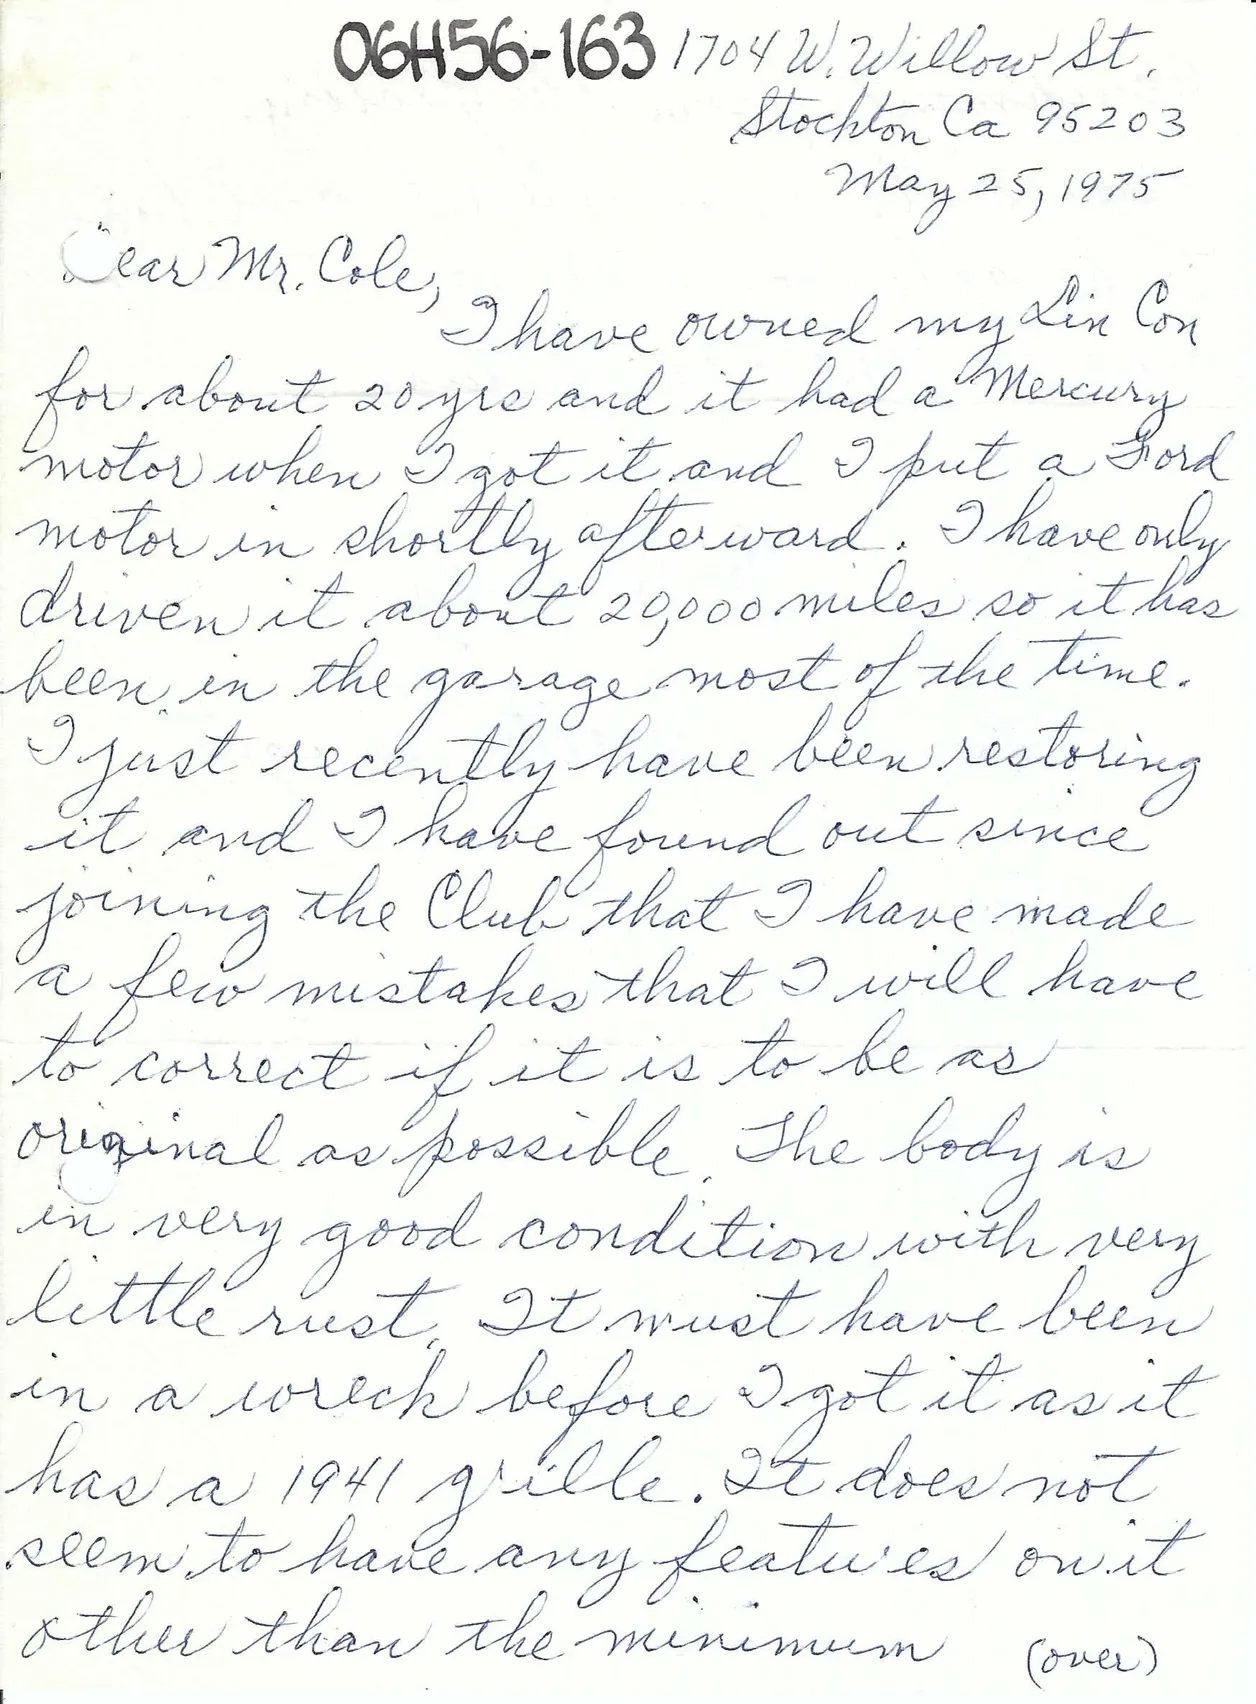 06H56-163 1704 W. Willow St.
Stockton Ca 95203
May 25, 1975
Dear Mr. Cole,
I have owned my Lin Con
for about 20 yrs and it had a Mercury
motor when I got it and I put a Ford
motor in shortly afterward. I have only
driven it about 20,000 miles so it has
been in the garage most of the time.
I just recently have been restoring
it and I have found out since
joining the Club that I have made
a few mistakes that I will have
to correct if it is to be as
original as possible. The body is
in very good condition with very
little rust. It must have been
in a wreck before I got it as it
has a 1941 grille. It does not
seem to have any features on it
other than the minimum (over)